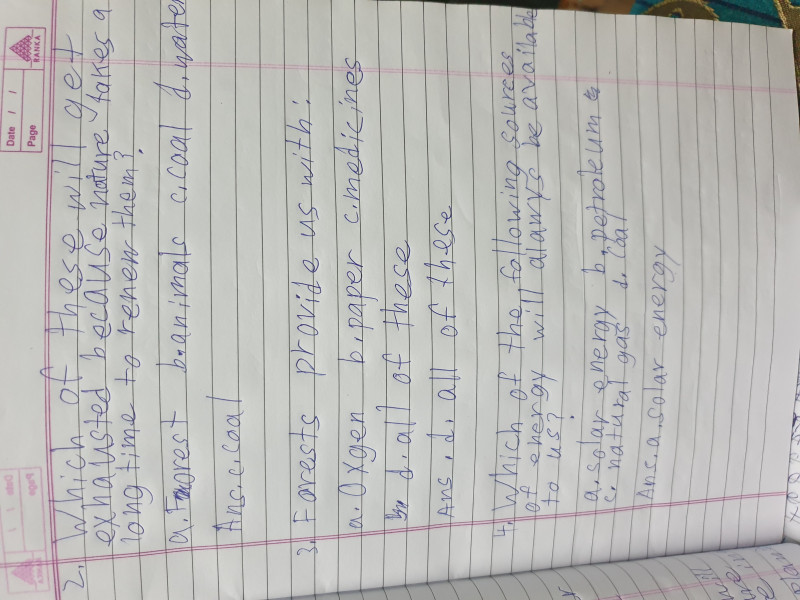 RANKA
Date / /
Page
2. Which of these will get
exhausted because nature takes a
long time to renew them?
a. Forest b. animals c. coal d. water
Ans. c. coal
3. Forests provide us with:
a. Oxgen b. paper c. medicines
d. all of these
Ans. d. all of these
4. Which of the following sources
of energy will alawys be available
to us?
a. solar energy b. petroleum
c. natural gas d. coal
Ans. a. solar energy